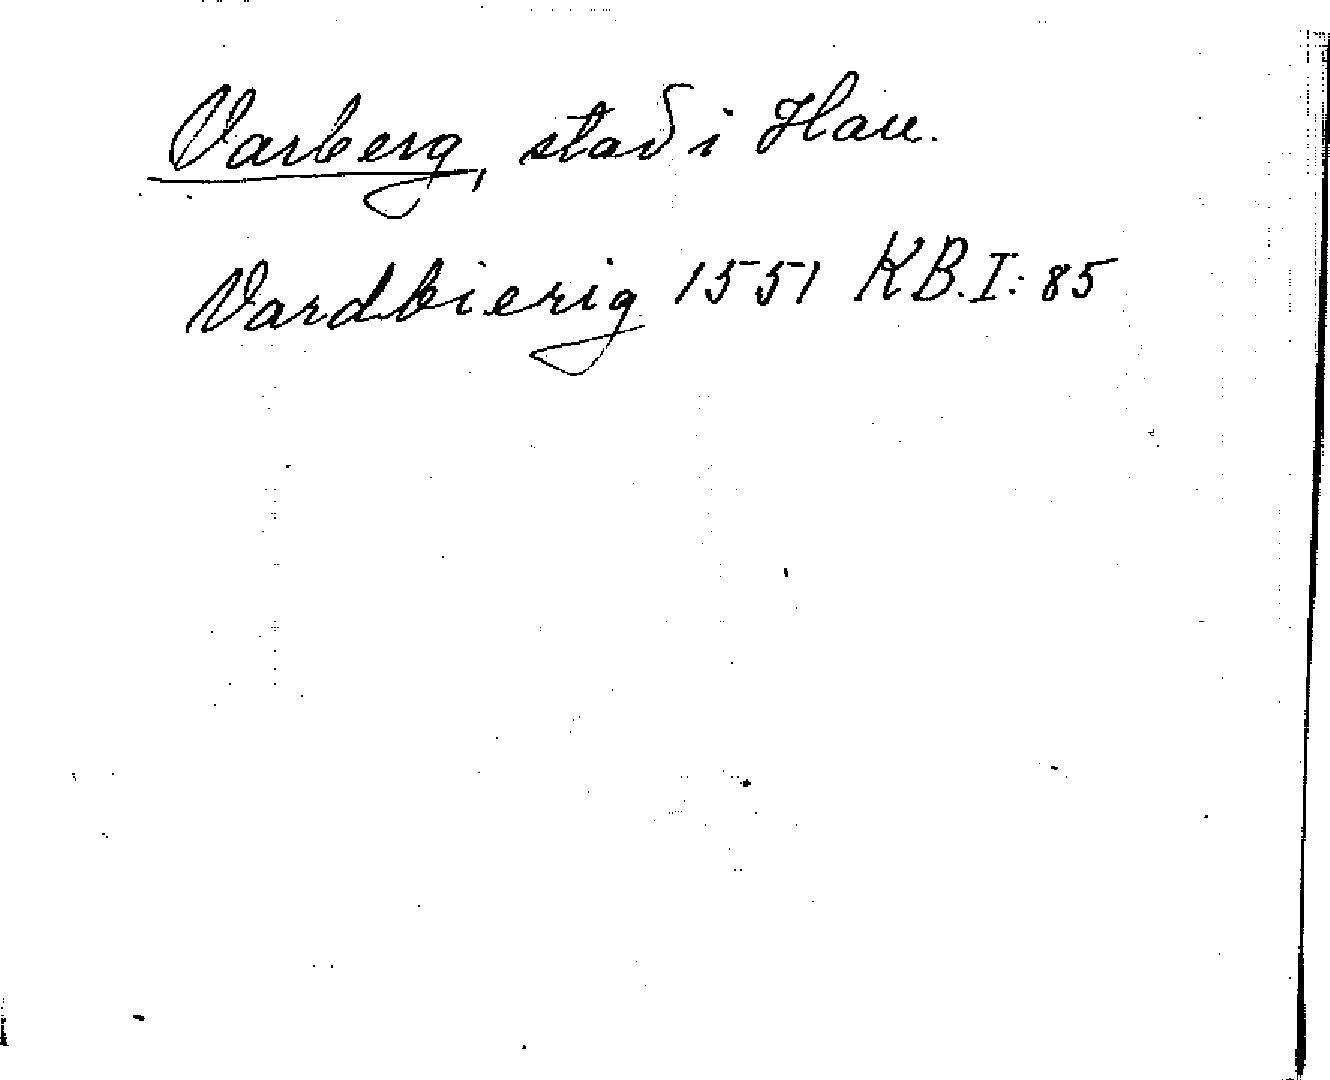 Varberg, stad i Hall.
Vardbierig 1551 KB.I:85